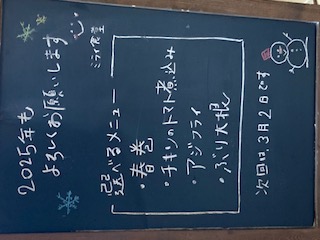 2025年も
よろしくお願いします
ミライ食堂
選べるメニュー
・春巻
・チキンのトマト煮込み
・アジフライ
・ぶり大根
次回は、3月2日です